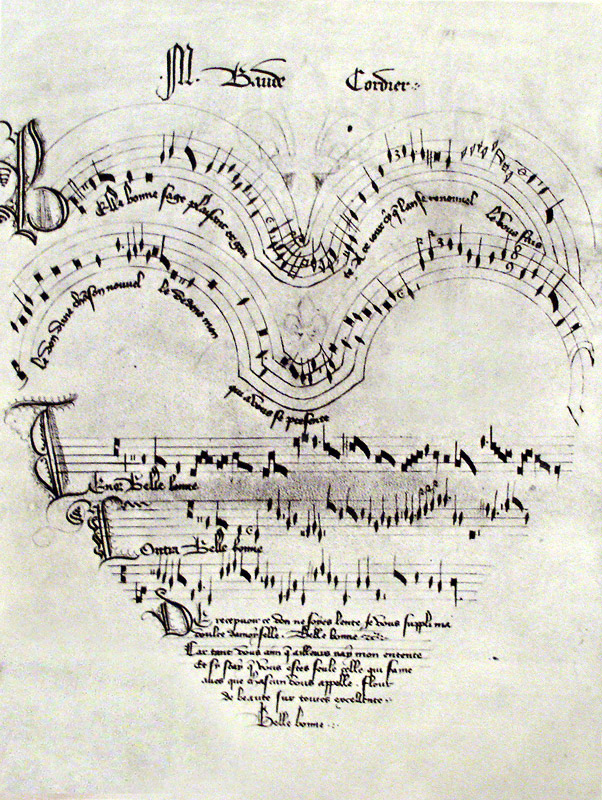 M. Baude Cordier
Belle bonne sage plesant et gen
te A ce iour cy q̃ lan se renouuel
le vous fais
le don dune chãson nouuel
le Dedens mon
qui a vous se presente
Tenor Belle bonne
Contra Belle bonne
De recepuoir ce don ne soyes lente Je vous suppli ma
doulce damoyselle. Belle bonne
Car tant vous aim q̃ aillours nay mon entente
Et se scay q̃ vous estes seule celle qui fame
aues que chascun vous appelle. Flour
de beaute sur toutes excellente
Belle bonne